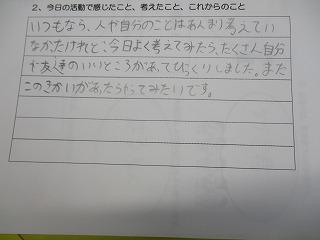 2、今日の活動で感じたこと、考えたこと、これからのこと
いつもなら、人や自分のことはあんまり考えてい
なかったけれど、今日よく考えてみたら、たくさん自分
や友達のいいところがあってびっくりしました。また
このきかいがあったらやってみたいです。